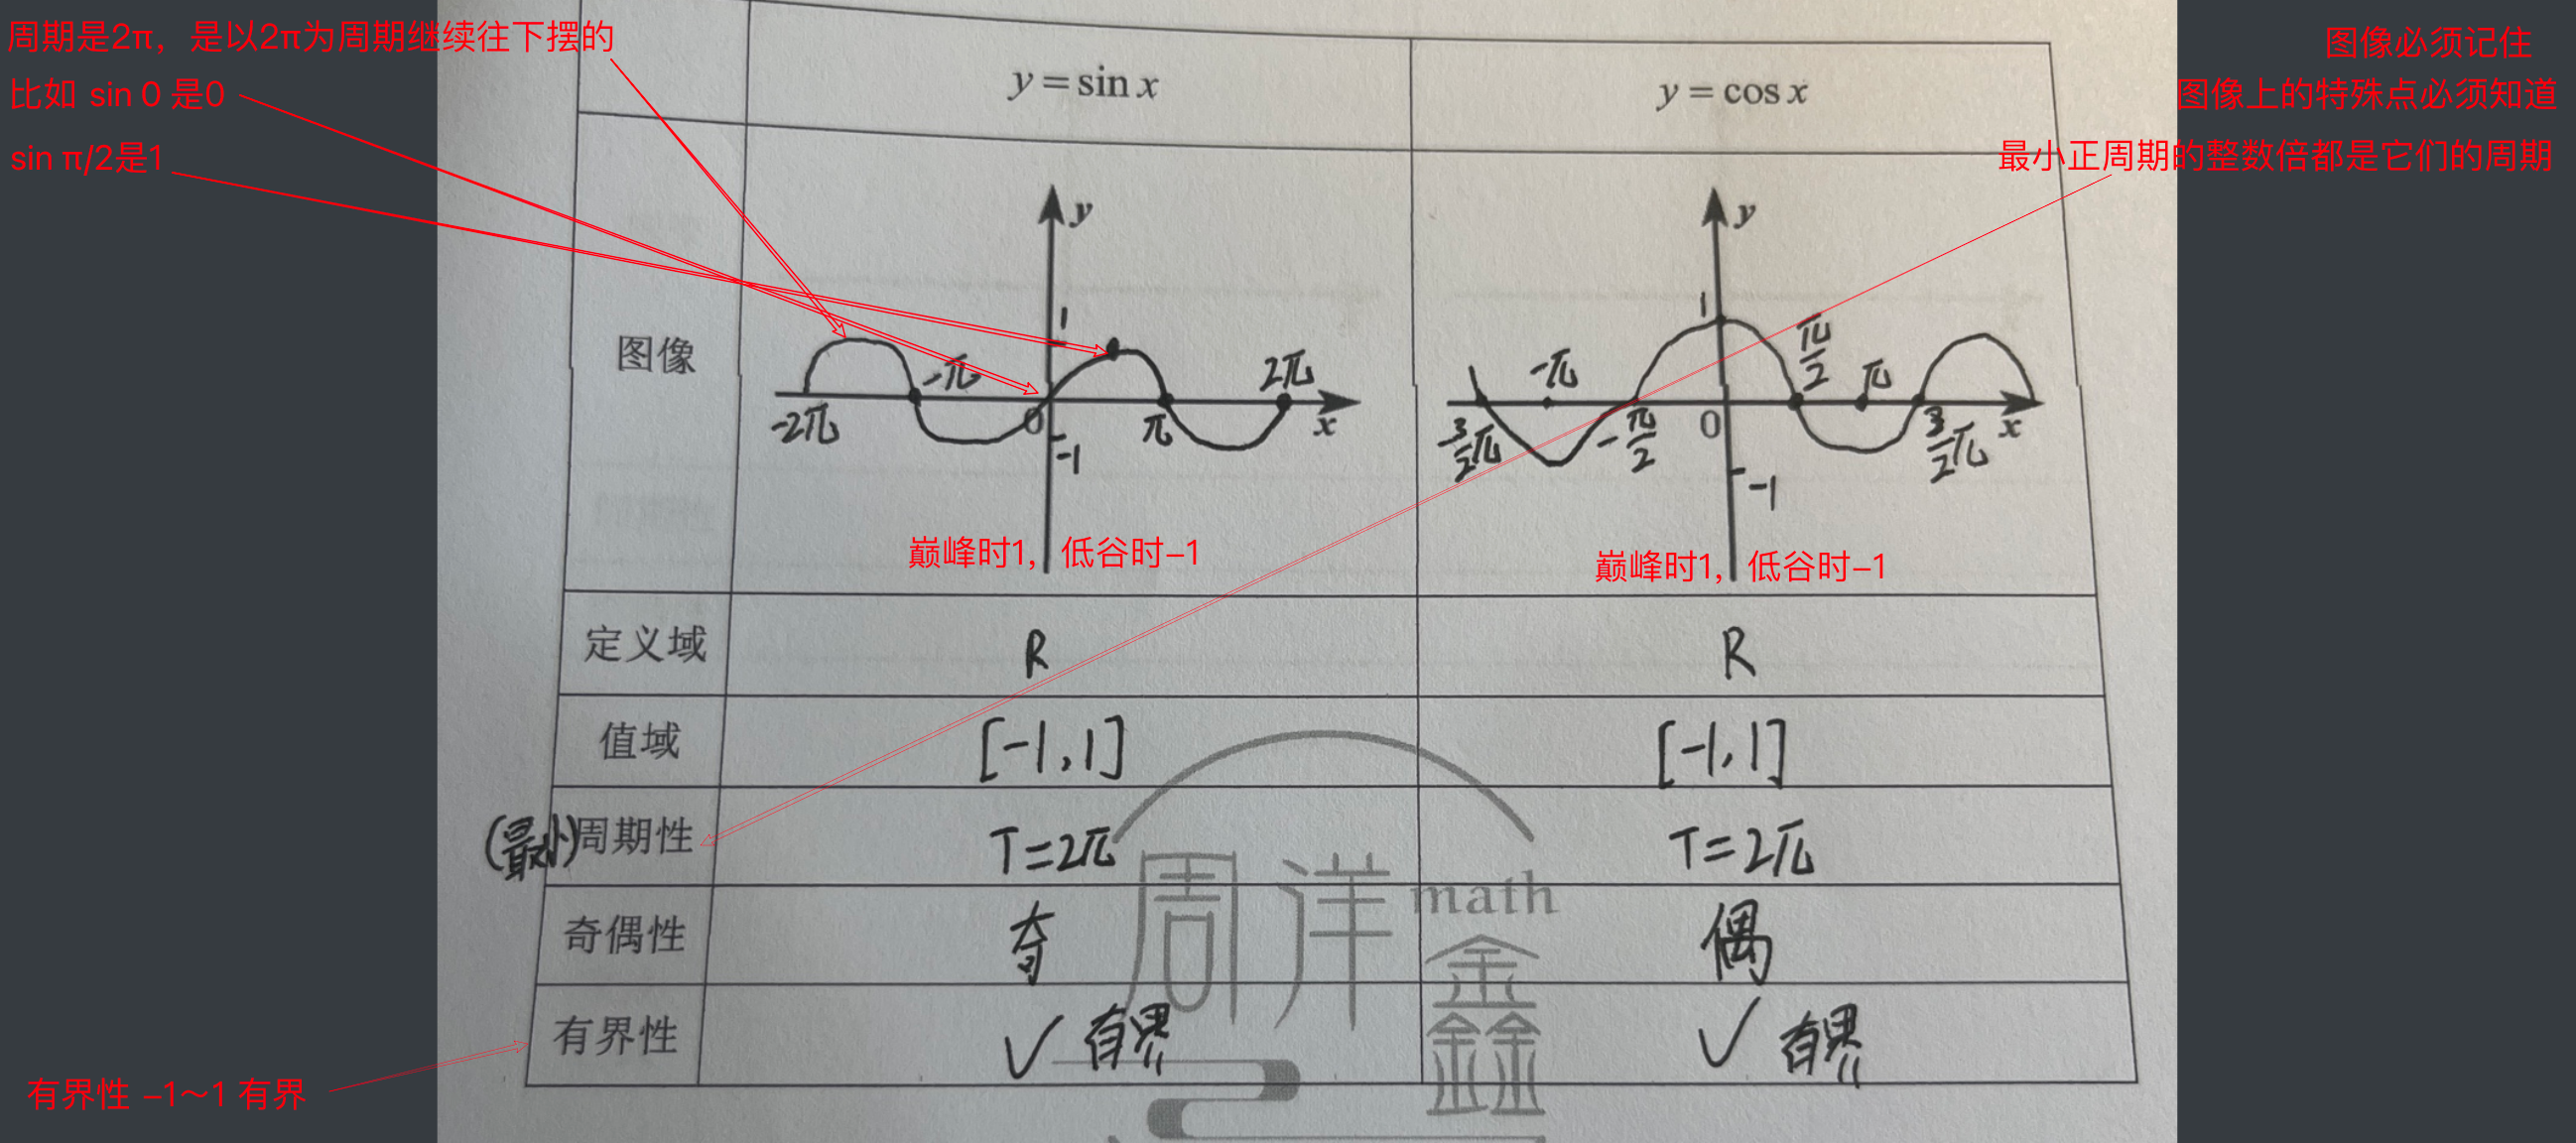 周期是2π，是以2π为周期继续往下摆的
比如 sin 0 是0
sin π/2是1
图像必须记住
图像上的特殊点必须知道
最小正周期的整数倍都是它们的周期
y = sin x
y = cos x
图像
y
1
-2π
-π
0
π
2π
x
-1
巅峰时1，低谷时-1
y
1
-3/2π
-π
-π/2
0
π/2
π
3/2π
x
-1
巅峰时1，低谷时-1
定义域
R
R
值域
[-1,1]
[-1,1]
(最小)周期性
T=2π
T=2π
奇偶性
奇
偶
有界性
✓ 有界
✓ 有界
有界性 -1～1 有界
周洋math
鑫